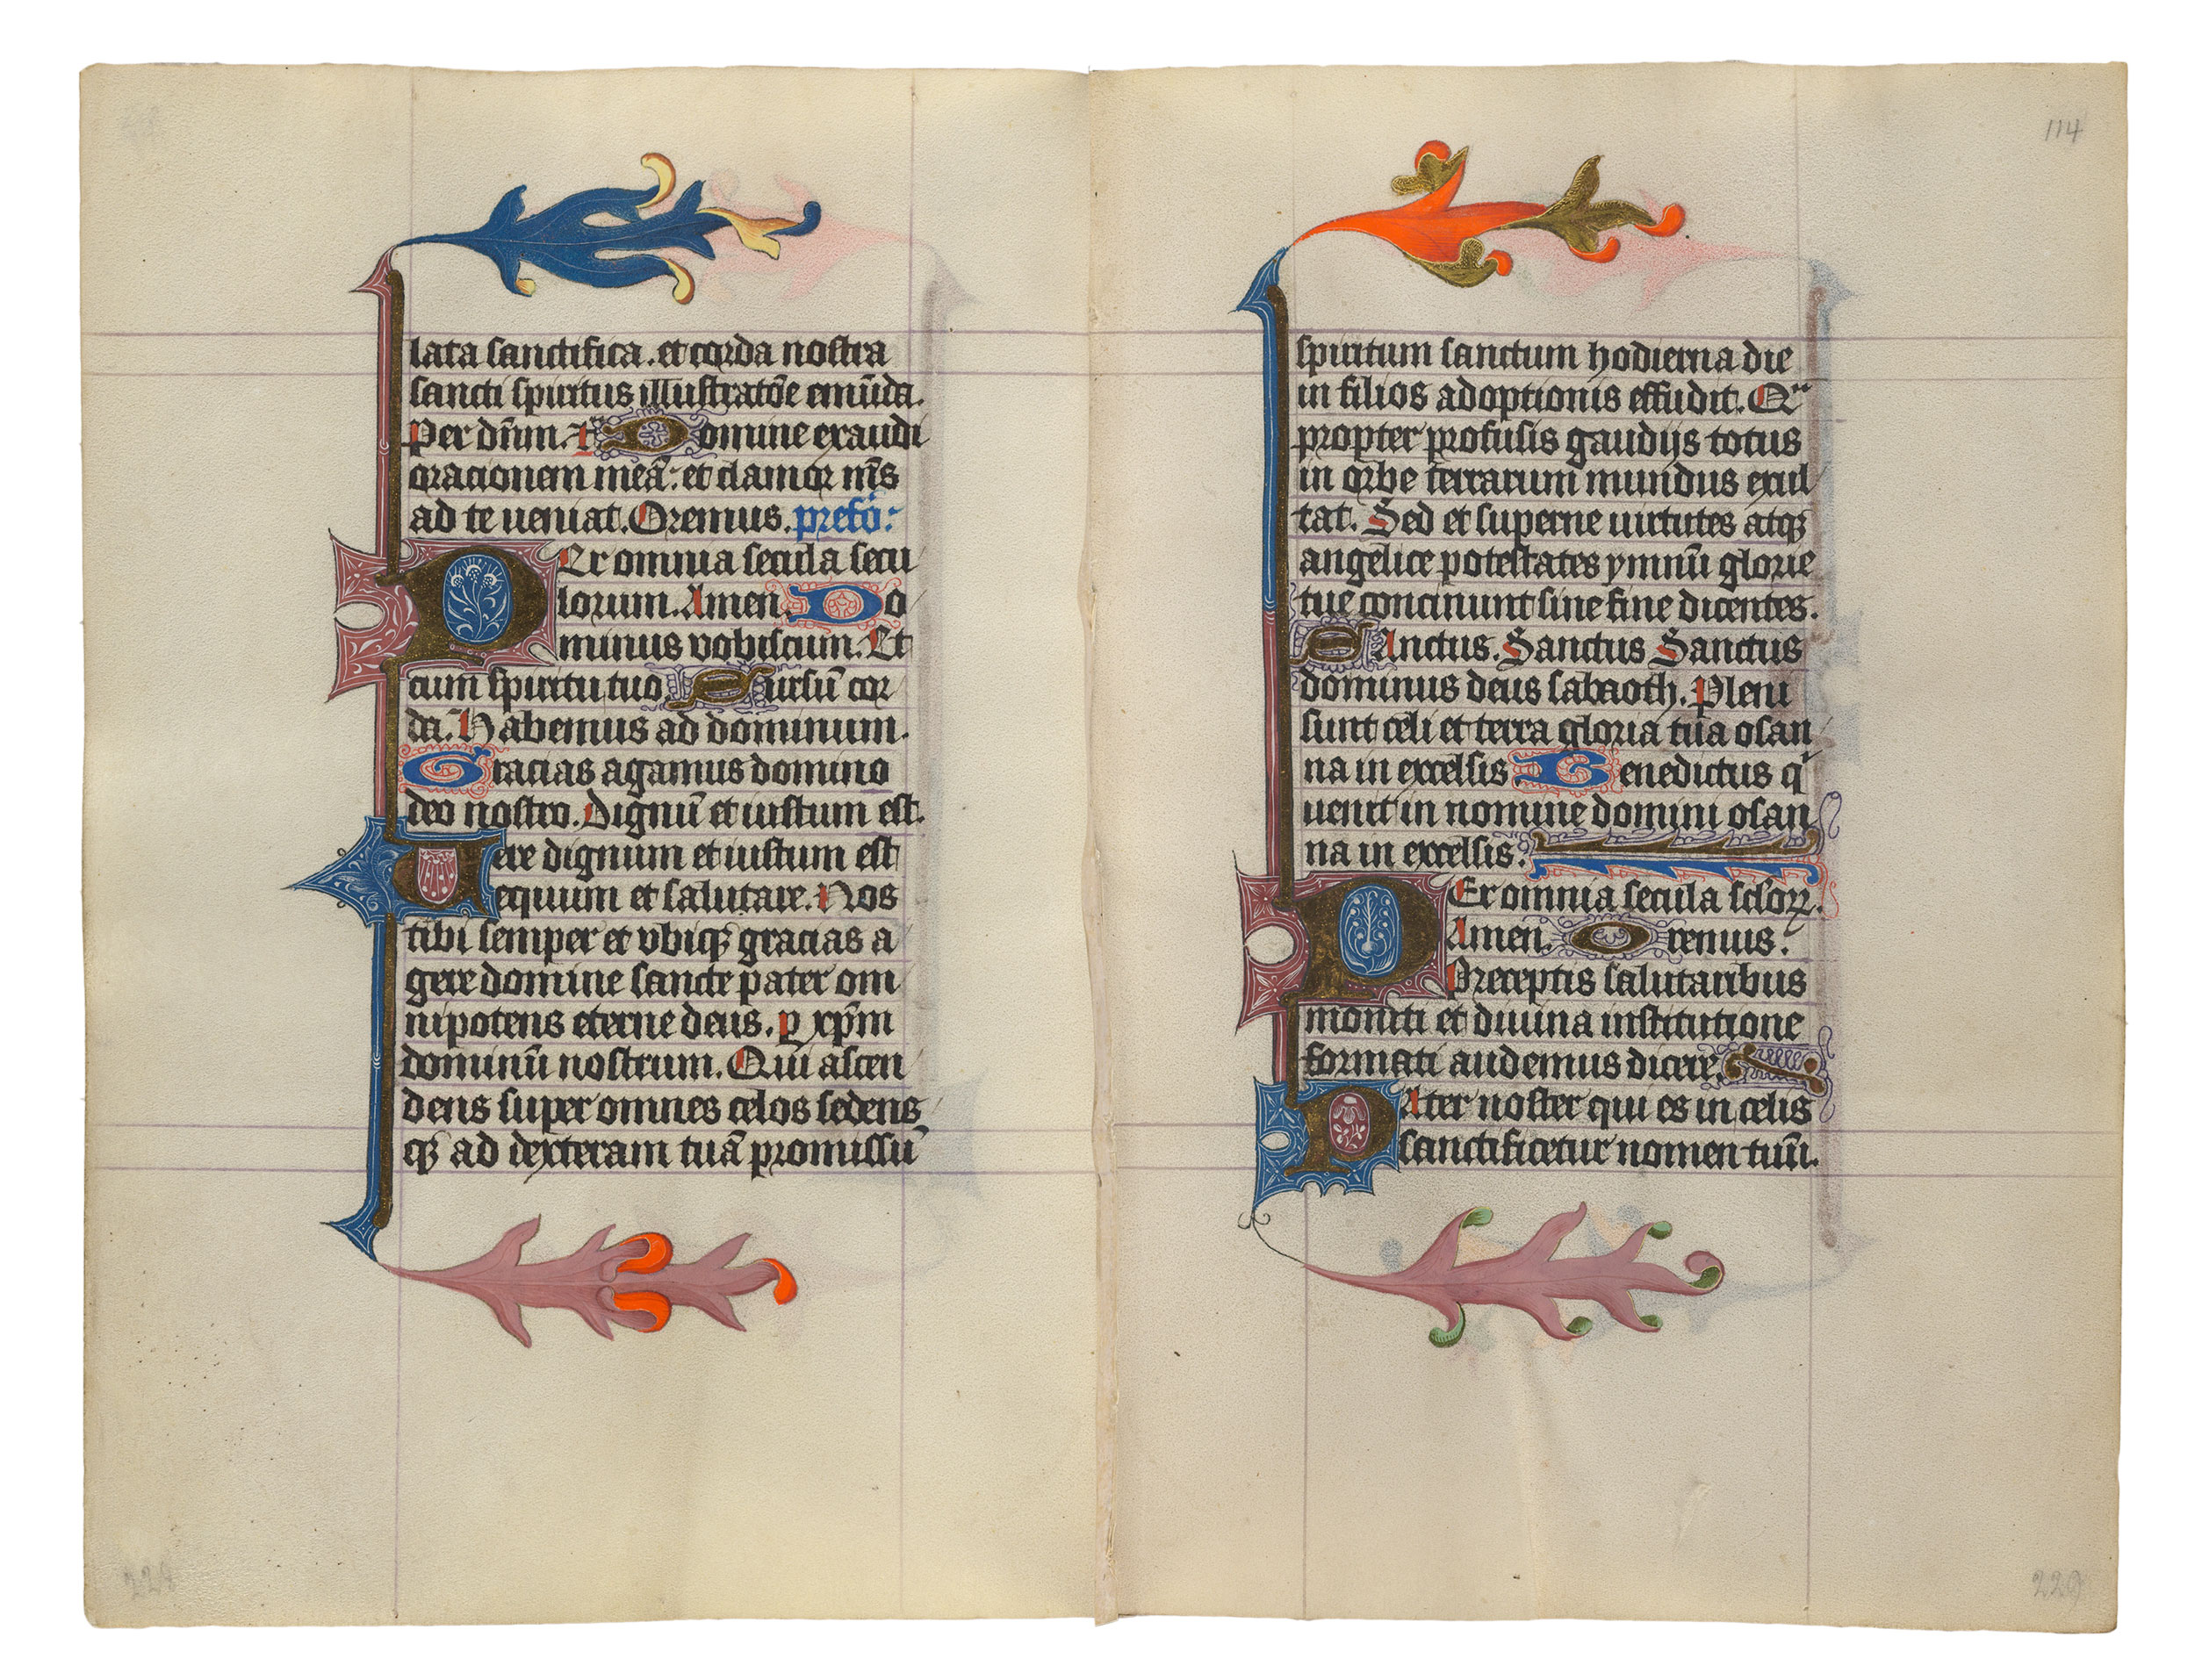 lata sanctifica. et corda nostra
sancti spiritus illustratōe emūda.
Per dn̄m. Domine exaudi
orationem meā: et clamor me᷒s
ad te ueniat. Oremus. prefō:
PEr omnia secula secu
lorum. Amen. Do
minus vobiscum. Et
cum spiritu tuo. Sursū cor
da. Habemus ad dominum.
Gracias agamus domino
deo nostro. Dignū et iustum est.
Uere dignum et iustum est
equum et salutare. Nos
tibi semper et vbiqꝫ gracias a
gere domine sancte pater om
nipotens eterne deus. ꝑ xp̄m
dominū nostrum. Qui ascen
dens super omnes celos sedens
qꝫ ad dexteram tuā promissū
114
spiritum sanctum hodierna die
in filios adoptionis effudit. Qua
propter profusis gaudijs totus
in orbe terrarum mundus exul
tat. Sed et superne uirtutes atqꝫ
angelice potestates ymnū glorie
tue concinunt sine fine dicentes.
SAnctus. Sanctus Sanctus
dominus deus sabaoth. Pleni
sunt celi et terra gloria tua osan
na in excelsis Benedictus qi
uenit in nomine domini osan
na in excelsis.
PEr omnia secula sclorꝫ.
Amen. Oremus.
Preceptis salutaribus
moniti et diuina institutione
formati audemus dicere.
PAter noster qui es in celis
sanctificetur nomen tuū.
228
229